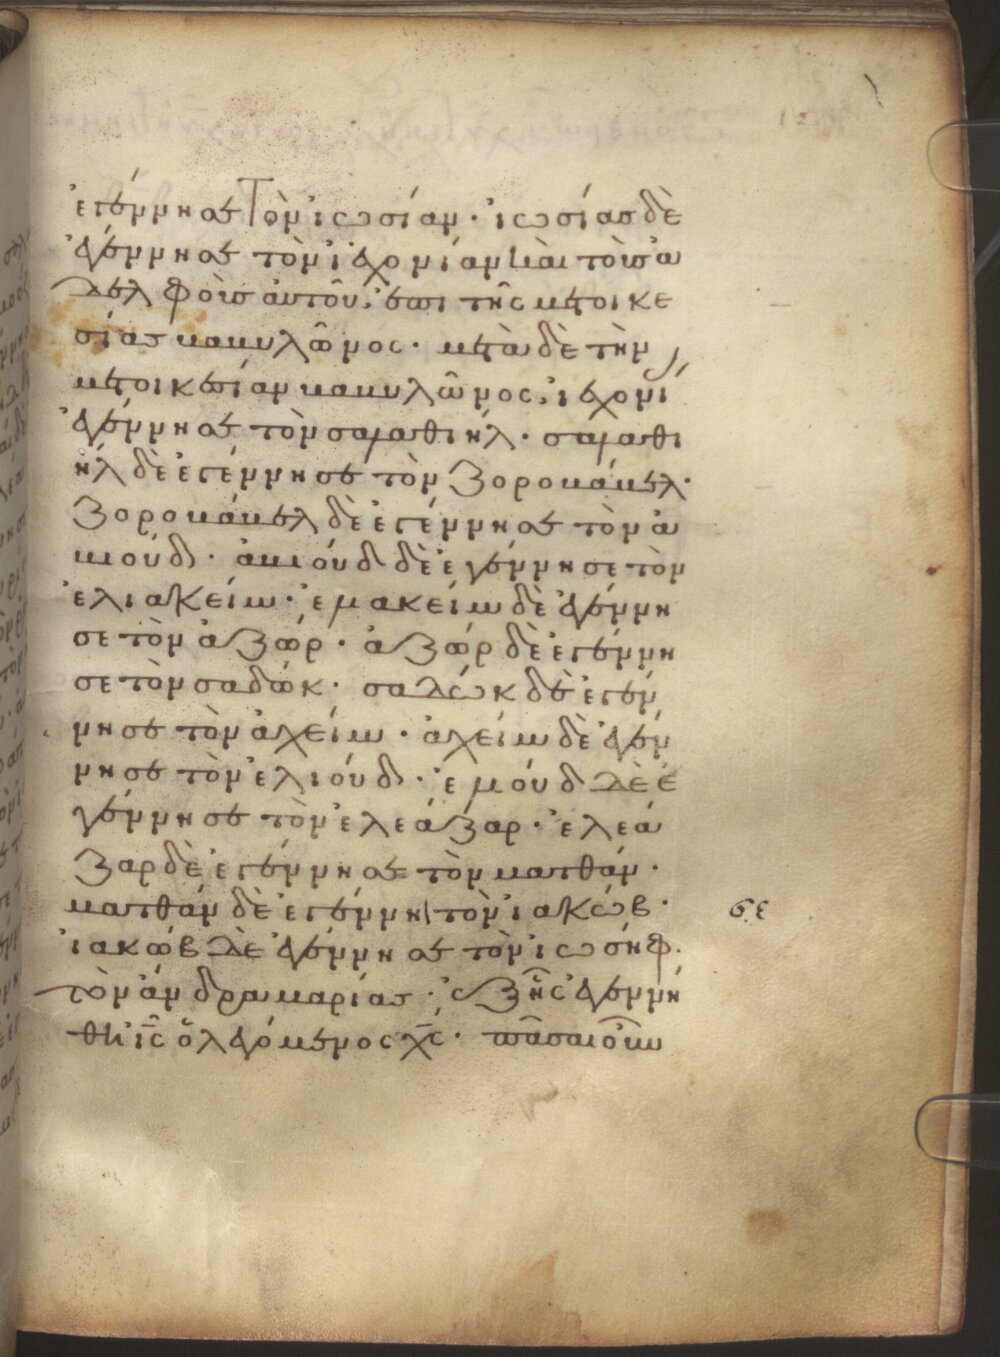 ἐγέννησε τὸν ἰωσίαν · ἰωσίας δὲ
ἐγέννησε τὸν ἰεχονίαν καὶ τοὺς ἀ
δελφοὺς αὐτοῦ, ἐπὶ τῆς μετοικε
σίας βαβυλῶνος · μετὰ δὲ τὴν
μετοικεσίαν βαβυλῶνος, ἰεχονί
ἐγέννησε τὸν σαλαθιήλ · σαλαθι
ήλ δὲ ἐγέννησε τὸν ζοροβάβελ ·
ζοροβάβελ δὲ ἐγέννησε τὸν ἀ
βιούδ · ἀβιούδ δὲ ἐγέννησε τὸν
ἐλιακείμ · ἐλιακείμ δὲ ἐγέννη
σε τὸν ἀζώρ · ἀζώρ δὲ ἐγέννη
σε τὸν σαδώκ · σαδώκ δὲ ἐγέν
νησε τὸν ἀχείμ · ἀχείμ δὲ ἐγέν
νησε τὸν ἐλιούδ · ἐλιούδ δὲ ἐ
γέννησε τὸν ἐλεάζαρ · ἐλεά
ζαρ δὲ ἐγέννησε τὸν ματθάν ·
ματθάν δὲ ἐγέννη τὸν ἰακώβ · σε
ἰακώβ δὲ ἐγέννησε τὸν ἰωσήφ ·
τὸν ἄνδρα μαρίας · ἐξ ἧς ἐγεννή
θη ις ὁ λεγόμενος χς · πᾶσαι οὖν